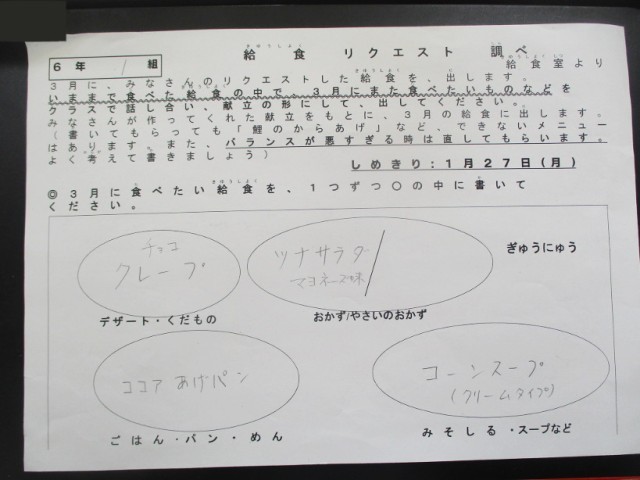 給食 リクエスト 調べ
6年 1組
給食室より
3月に、みなさんのリクエストした給食を、出します。
いままで食べた給食の中で、3月にまた食べたいものなどを
クラスで話し合い、献立の形にして、出してください。
みなさんが作ってくれた献立をもとに、3月の給食に出します。
(書いてもらっても「鯉のからあげ」など、できないメニュー
はあります。また、バランスが悪すぎる時は直してもらいます。
よく考えて書きましょう)
しめきり:1月27日(月)
◎3月に食べたい給食を、1つずつ○の中に書いて
ください。
チョコ
クレープ
デザート・くだもの
ツナサラダ
マヨネーズ味
おかず/やさいのおかず
ぎゅうにゅう
ココア あげパン
ごはん・パン・めん
コーンスープ
(クリームタイプ)
みそしる・スープなど